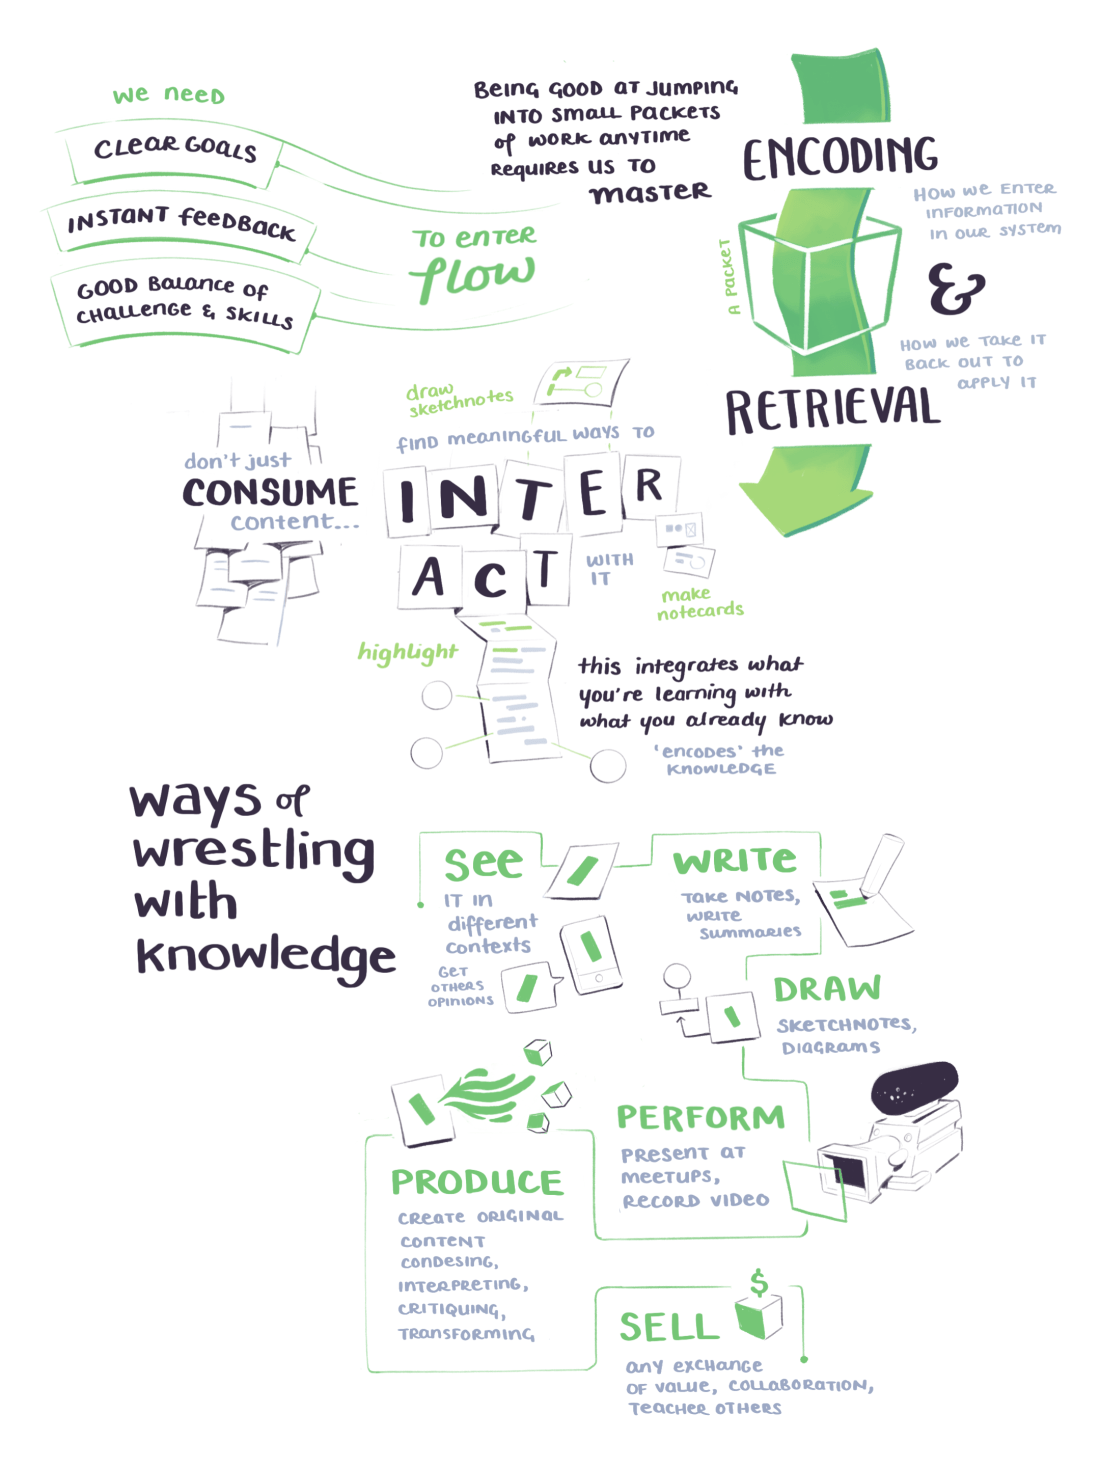 we need
CLEAR GOALS
INSTANT feeDBACK
GOOD Balance of
CHALLENGE & SKILLS
TO enTER
flow
Being GOOD AT JUMPING
INTO small PACKETS
of WORK anyTIME
REQUIRES US TO
master
ENCODING
HOW we ENTER
INFORMATION
In OUR SYSTEM
A PACKET
&
HOW we TAKE IT
BACK OUT TO
APPLY IT
RETRIEVAL
don't just
CONSUME
content...
draw
sketchnotes
find meaningful ways TO
INTER
ACT
WITH
IT
make
notecards
highlight
this integrates what
you're learning with
what you already know
'encodes' the
KNOWLEDGE
ways of
wrestling
with
knowledge
see
IT in
different
contexts
GET
OTHERS
OPINIONS
WRITE
Take NOTES,
WRITE
Summaries
DRAW
SKETCHNOTES,
DIAGRAMS
PERFORM
PRESENT AT
MEETUPS,
RECORD VIDEO
PRODUCE
CREATE ORIGINAL
CONTENT
CONDESING,
INTERPRETING,
CRITIQUING,
TRANSFORMING
$
SELL
any exchange
OF value, COLLABORATION,
Teacher OTHERS